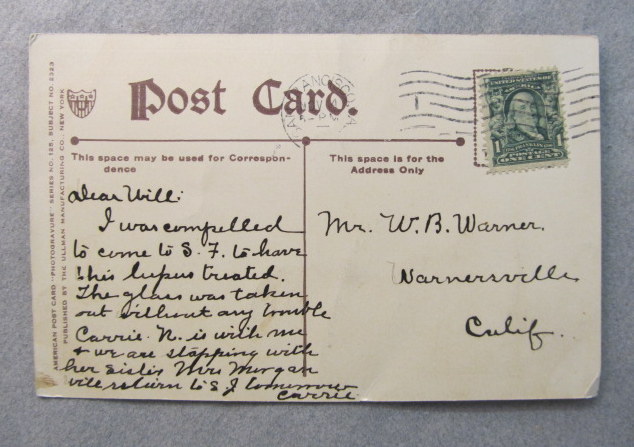 Post Card.
This space may be used for Correspon-
dence
This space is for the
Address Only
AMERICAN POST CARD "PHOTOGRAVURE" SERIES NO. 125, SUBJECT NO. 2223
PUBLISHED BY THE ULLMAN MANUFACTURING CO. NEW YORK
SAN FRANCISCO, CA
UNITED STATES OF
AMERICA
1
POSTAGE
ONE CENT
Dear Will:
I was compelled
to come to S. F. to have
this lupus treated.
The glass was taken
out without any trouble
Carrie N. is with me
+ we are stopping with
her sister Mrs Morgan
will return to S. J tomorrow
Carrie
Mr. W. B. Warner.
Warnersville
Calif.